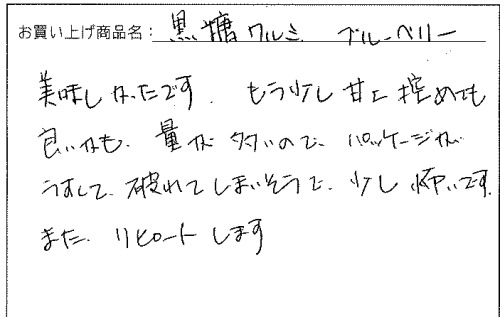 お買い上げ商品名：黒糖クルミ ブルーベリー
美味しかったです。もう少し甘さ控めでも
良いかも、量が多いので、パッケージが
うすくて、破れてしまいそうで、少し怖いです。
また、リピートします